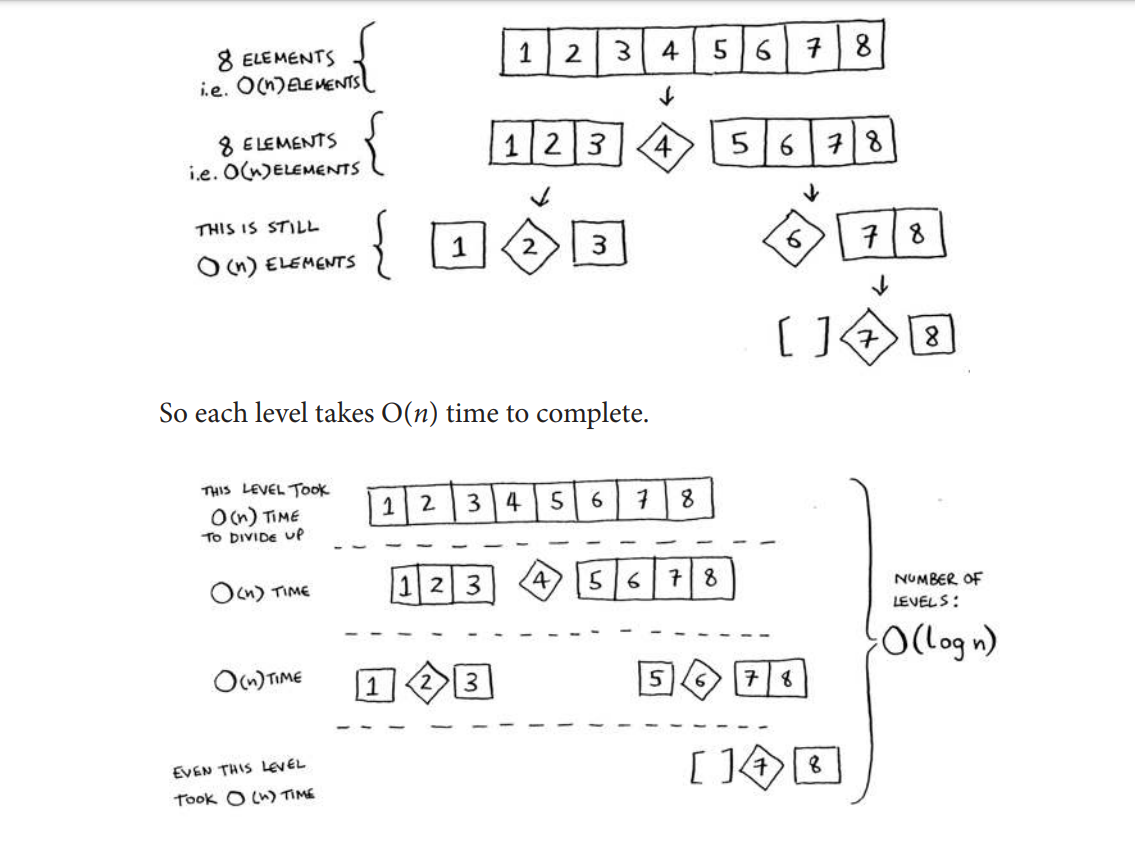 8 ELEMENTS
i.e. O(n) ELEMENTS
1 2 3 4 5 6 7 8
8 ELEMENTS
i.e. O(n) ELEMENTS
1 2 3 4 5 6 7 8
THIS IS STILL
O(n) ELEMENTS
1 2 3 6 7 8
[ ] 7 8
So each level takes O(n) time to complete.
THIS LEVEL TOOK
O(n) TIME
TO DIVIDE UP
1 2 3 4 5 6 7 8
O(n) TIME
1 2 3 4 5 6 7 8
NUMBER OF
LEVELS:
O(log n)
O(n) TIME
1 2 3 5 6 7 8
EVEN THIS LEVEL
TOOK O(n) TIME
[ ] 7 8